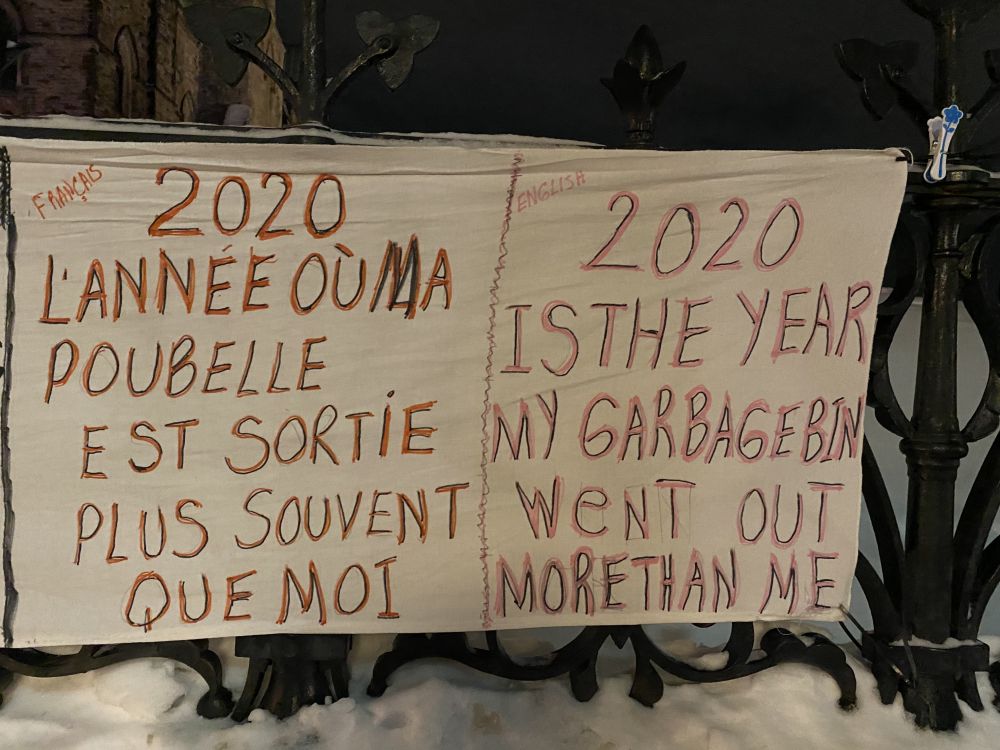 FRANÇAIS
2020
L'ANNÉE OÙ MA
POUBELLE
EST SORTIE
PLUS SOUVENT
QUE MOI
ENGLISH
2020
IS THE YEAR
MY GARBAGE BIN
WeNT OUT
MORE THAN ME